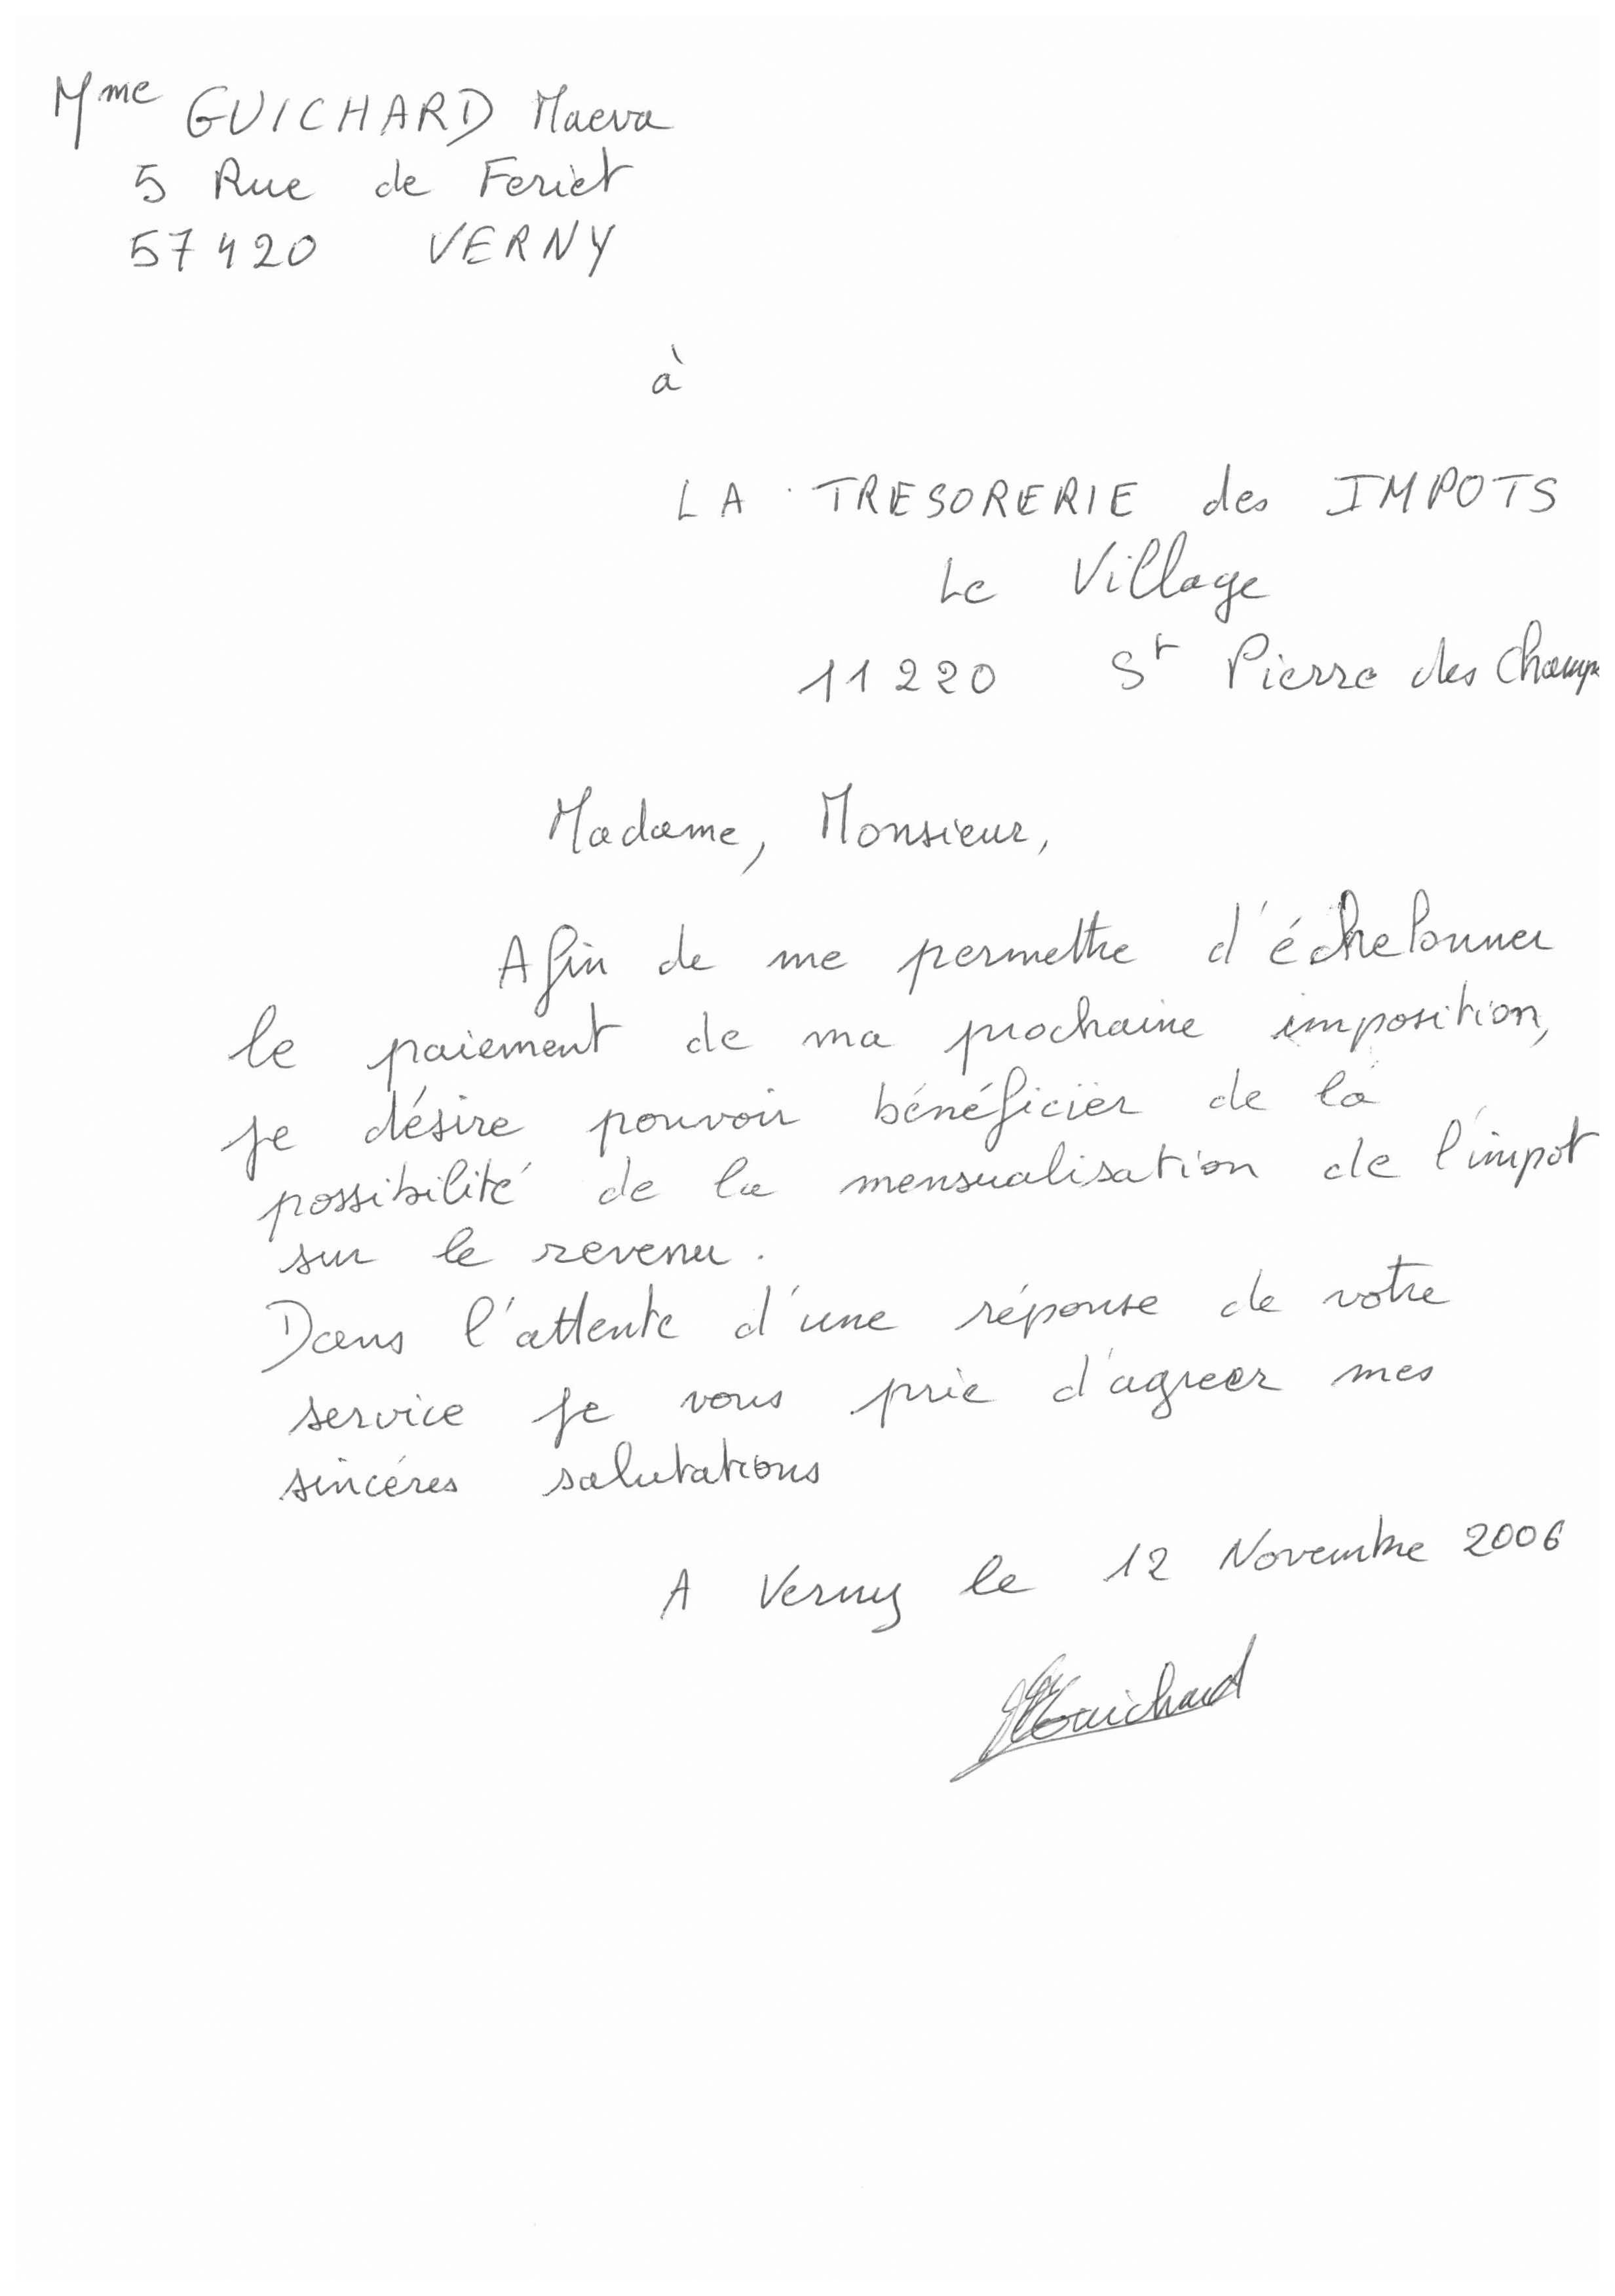 Mme GUICHARD Maeva
5 Rue de Feriet
57420 VERNY
à
LA TRESORERIE des IMPOTS
Le Village
11220 St Pierre des Champs
Madame, Monsieur,
Afin de me permettre d'échelonner
le paiement de ma prochaine imposition,
je désire pouvoir bénéficier de la
possibilité de la mensualisation de l'impot
sur le revenu.
Dans l'attente d'une réponse de votre
service je vous prie d'agreer mes
sincéres salutations
A Verny le 12 Novembre 2006
Guichard